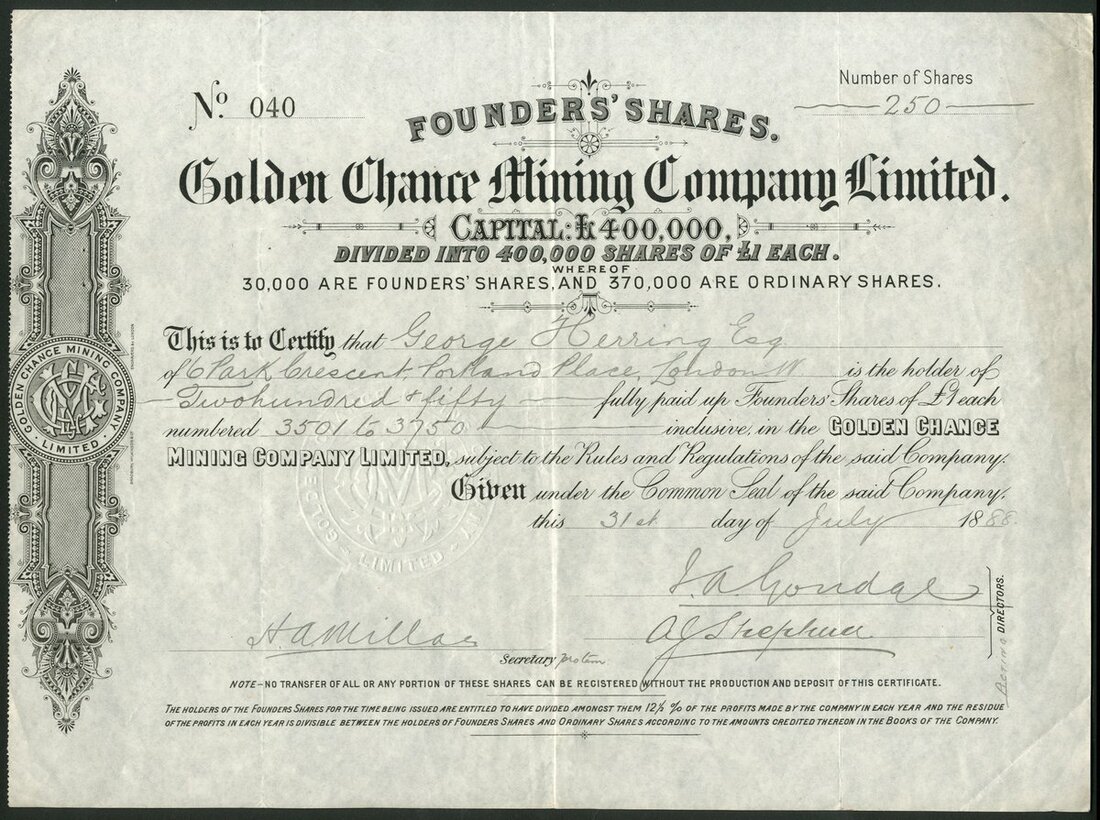 Nº 040
Number of Shares
250
FOUNDERS' SHARES.
Golden Chance Mining Company Limited.
CAPITAL: £400,000.
DIVIDED INTO 400,000 SHARES OF £1 EACH.
WHEREOF
30,000 ARE FOUNDERS' SHARES, AND 370,000 ARE ORDINARY SHARES.
This is to Certify that George Herring Esq
of 6 Park Crescent, Portland Place, London W is the holder of
Two hundred & fifty fully paid up Founders' Shares of £1 each
numbered 3501 to 3750 inclusive, in the GOLDEN CHANCE
MINING COMPANY LIMITED, subject to the Rules and Regulations of the said Company.
Given under the Common Seal of the said Company,
this 31st day of July 1888.
GOLDEN CHANCE MINING COMPANY
LIMITED
LIMITED
H A Millar
Secretary protem
A J Shepherd
Acting DIRECTORS.
NOTE—NO TRANSFER OF ALL OR ANY PORTION OF THESE SHARES CAN BE REGISTERED WITHOUT THE PRODUCTION AND DEPOSIT OF THIS CERTIFICATE.
THE HOLDERS OF THE FOUNDERS SHARES FOR THE TIME BEING ISSUED ARE ENTITLED TO HAVE DIVIDED AMONGST THEM 12½ % OF THE PROFITS MADE BY THE COMPANY IN EACH YEAR AND THE RESIDUE
OF THE PROFITS IN EACH YEAR IS DIVISIBLE BETWEEN THE HOLDERS OF FOUNDERS SHARES AND ORDINARY SHARES ACCORDING TO THE AMOUNTS CREDITED THEREON IN THE BOOKS OF THE COMPANY.